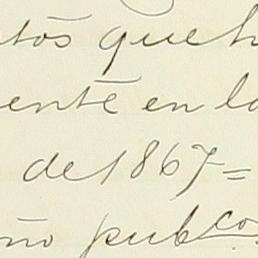 tōs que h
ente en la
de 1867=
ño pubco.